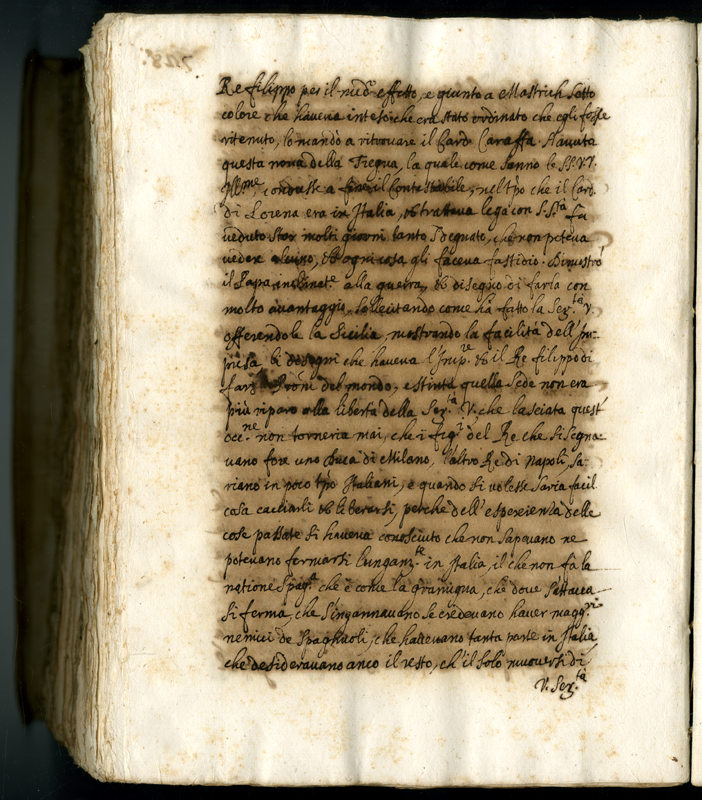 Re filippo per il med.o effetto, e giunto a Mastrich sotto
colore che haveva inteso che era stato ordinato che egli fosse
ritenuto, lo mandò a ritrovare il Card. Caraffa. Havuta
questa nova della Tregua, la quale come sanno le SS. VV.
Ill.me, condusse a fin il Contestabile, nel tpo che il Card.
di Lorena era in Italia, et trattava lega con S. S.tà fu
veduto star molti giorni tanto sdegnato, che non poteva
veder alcuno, et ogni cosa gli faceva fastidio. Dimostrò
il Papa inclinat.e alla guerra, et disegno di farla con
molto avantaggio, sollecitando come ha fatto la Ser.tà V.
offerendole la Sicilia, mostrando la facilità dell'im-
presa le disegni che haveva l'Imp.re et il Re filippo di
farsi Proni del mondo, estinta quella Sede non era
più riparo alla libertà della Ser.tà V. che lasciata quest'
occ.ne non torneria mai, che i fig.i del Re che si segna-
vano fore uno Duca di Milano, l'altro Re di Napoli, sa-
riano in poco tpo Italiani, e quando si volesse saria facil
cosa cacciarli et liberarsi, perche dell'esperienza delle
cose passate si haveva conosciuto che non sapevano ne
potevano fermarsi lungam.te in Italia, il che non fà la
natione Spag.a che è come la gramigna, che dove s'attacca
si ferma, che s'ingannavano se credevano haver magg.ri
nemici de Spagnuoli, che havevano tanta parte in Italia
che desideravano anco il resto, ch'il solo muoversi di
V. Ser.tà